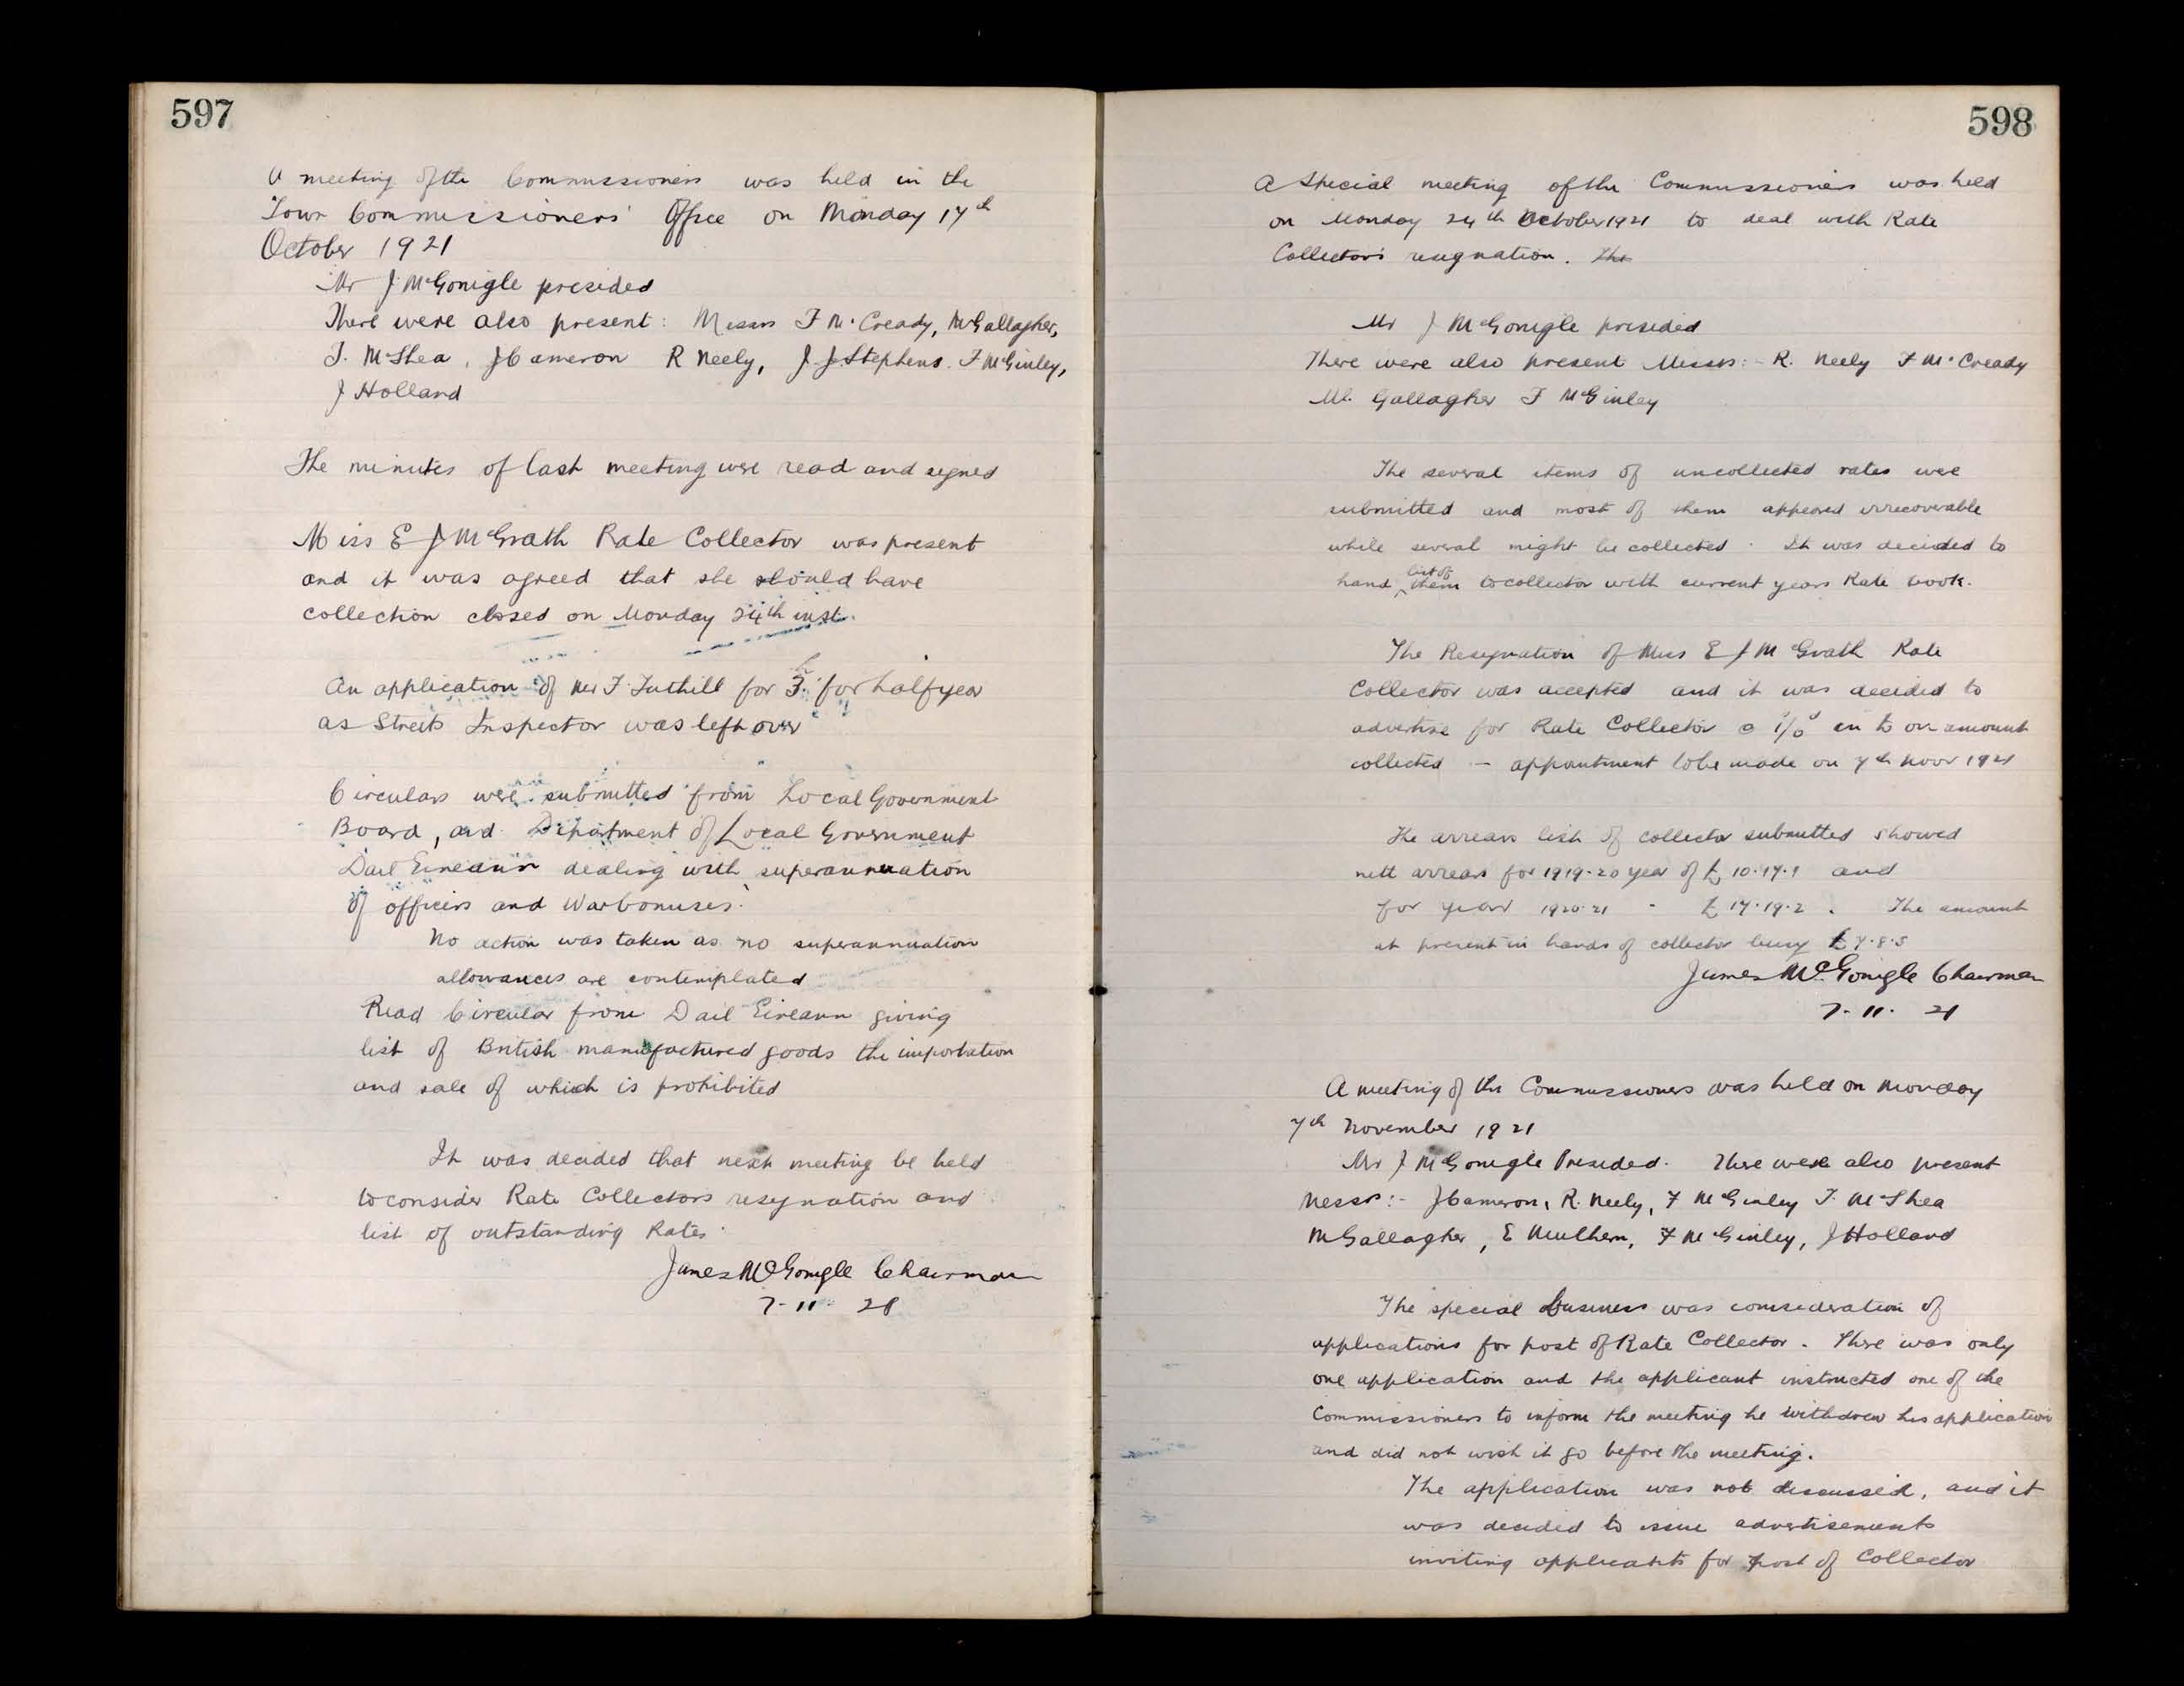 597
A meeting of the Commissioners was held in the
Town Commissioners' Office on Monday 17th
October 1921
Mr J McGonigle presided
There were also present: Messrs F McCready, M Gallagher,
T. McShea, J Cameron R Neely, J. J. Stephens. F McGinley,
J Holland
The minutes of last meeting were read and signed
Miss E J McGrath Rate Collector was present
and it was agreed that she should have
collection closed on Monday 24th inst.
An application of Mr F Tuthill for for half year
as Streets Inspector was left over
Circulars were submitted from Local Government
Board, and Department of Local Government
Dail Eireann dealing with superannuation
of officers and War bonuses.
No action was taken as no superannuation
allowances are contemplated
Read Circular from Dail Eireann giving
list of British manufactured goods the importation
and sale of which is prohibited
It was decided that next meeting be held
to consider Rate Collectors resignation and
list of outstanding Rates.
James McGonigle Chairman
7-11-
598
A Special meeting of the Commissioners was held
on Monday 24th October 1921 to deal with Rate
Collector's resignation. The
Mr J McGonigle presided
There were also present Messrs:- R. Neely F McCready
M. Gallagher F McGinley
The several items of uncollected rates were
submitted and most of them appeared irrecoverable
while several might be collected. It was decided to
hand list of them to collector with current years Rate book.
The Resignation of Miss E J McGrath Rate
Collector was accepted and it was decided to
advertise for Rate Collector 1/0 in £ on amount
collected - appointment to be made on 7th Novr 1921
The arrears list of collector submitted showed
nett arrears for 1919-20 year of £10.17.1 and
for year 1920-21 - £17.19.2. The amount
at present in hands of collector being £7.8.5
James McGonigle Chairman
7-11-21
A meeting of the Commissioners was held on Monday
7th November 1921
Mr J McGonigle Presided. There were also present
Messrs:- J Cameron, R. Neely, F McGinley T. McShea
M Gallagher, E Mulhern, F McGinley, J Holland
The special business was consideration of
applications for post of Rate Collector. There was only
one application and the applicant instructed one of the
Commissioners to inform the meeting he withdrew his application
and did not wish it go before the meeting.
The application was not discussed, and it
was decided to issue advertisements
inviting applicants for post of Collector